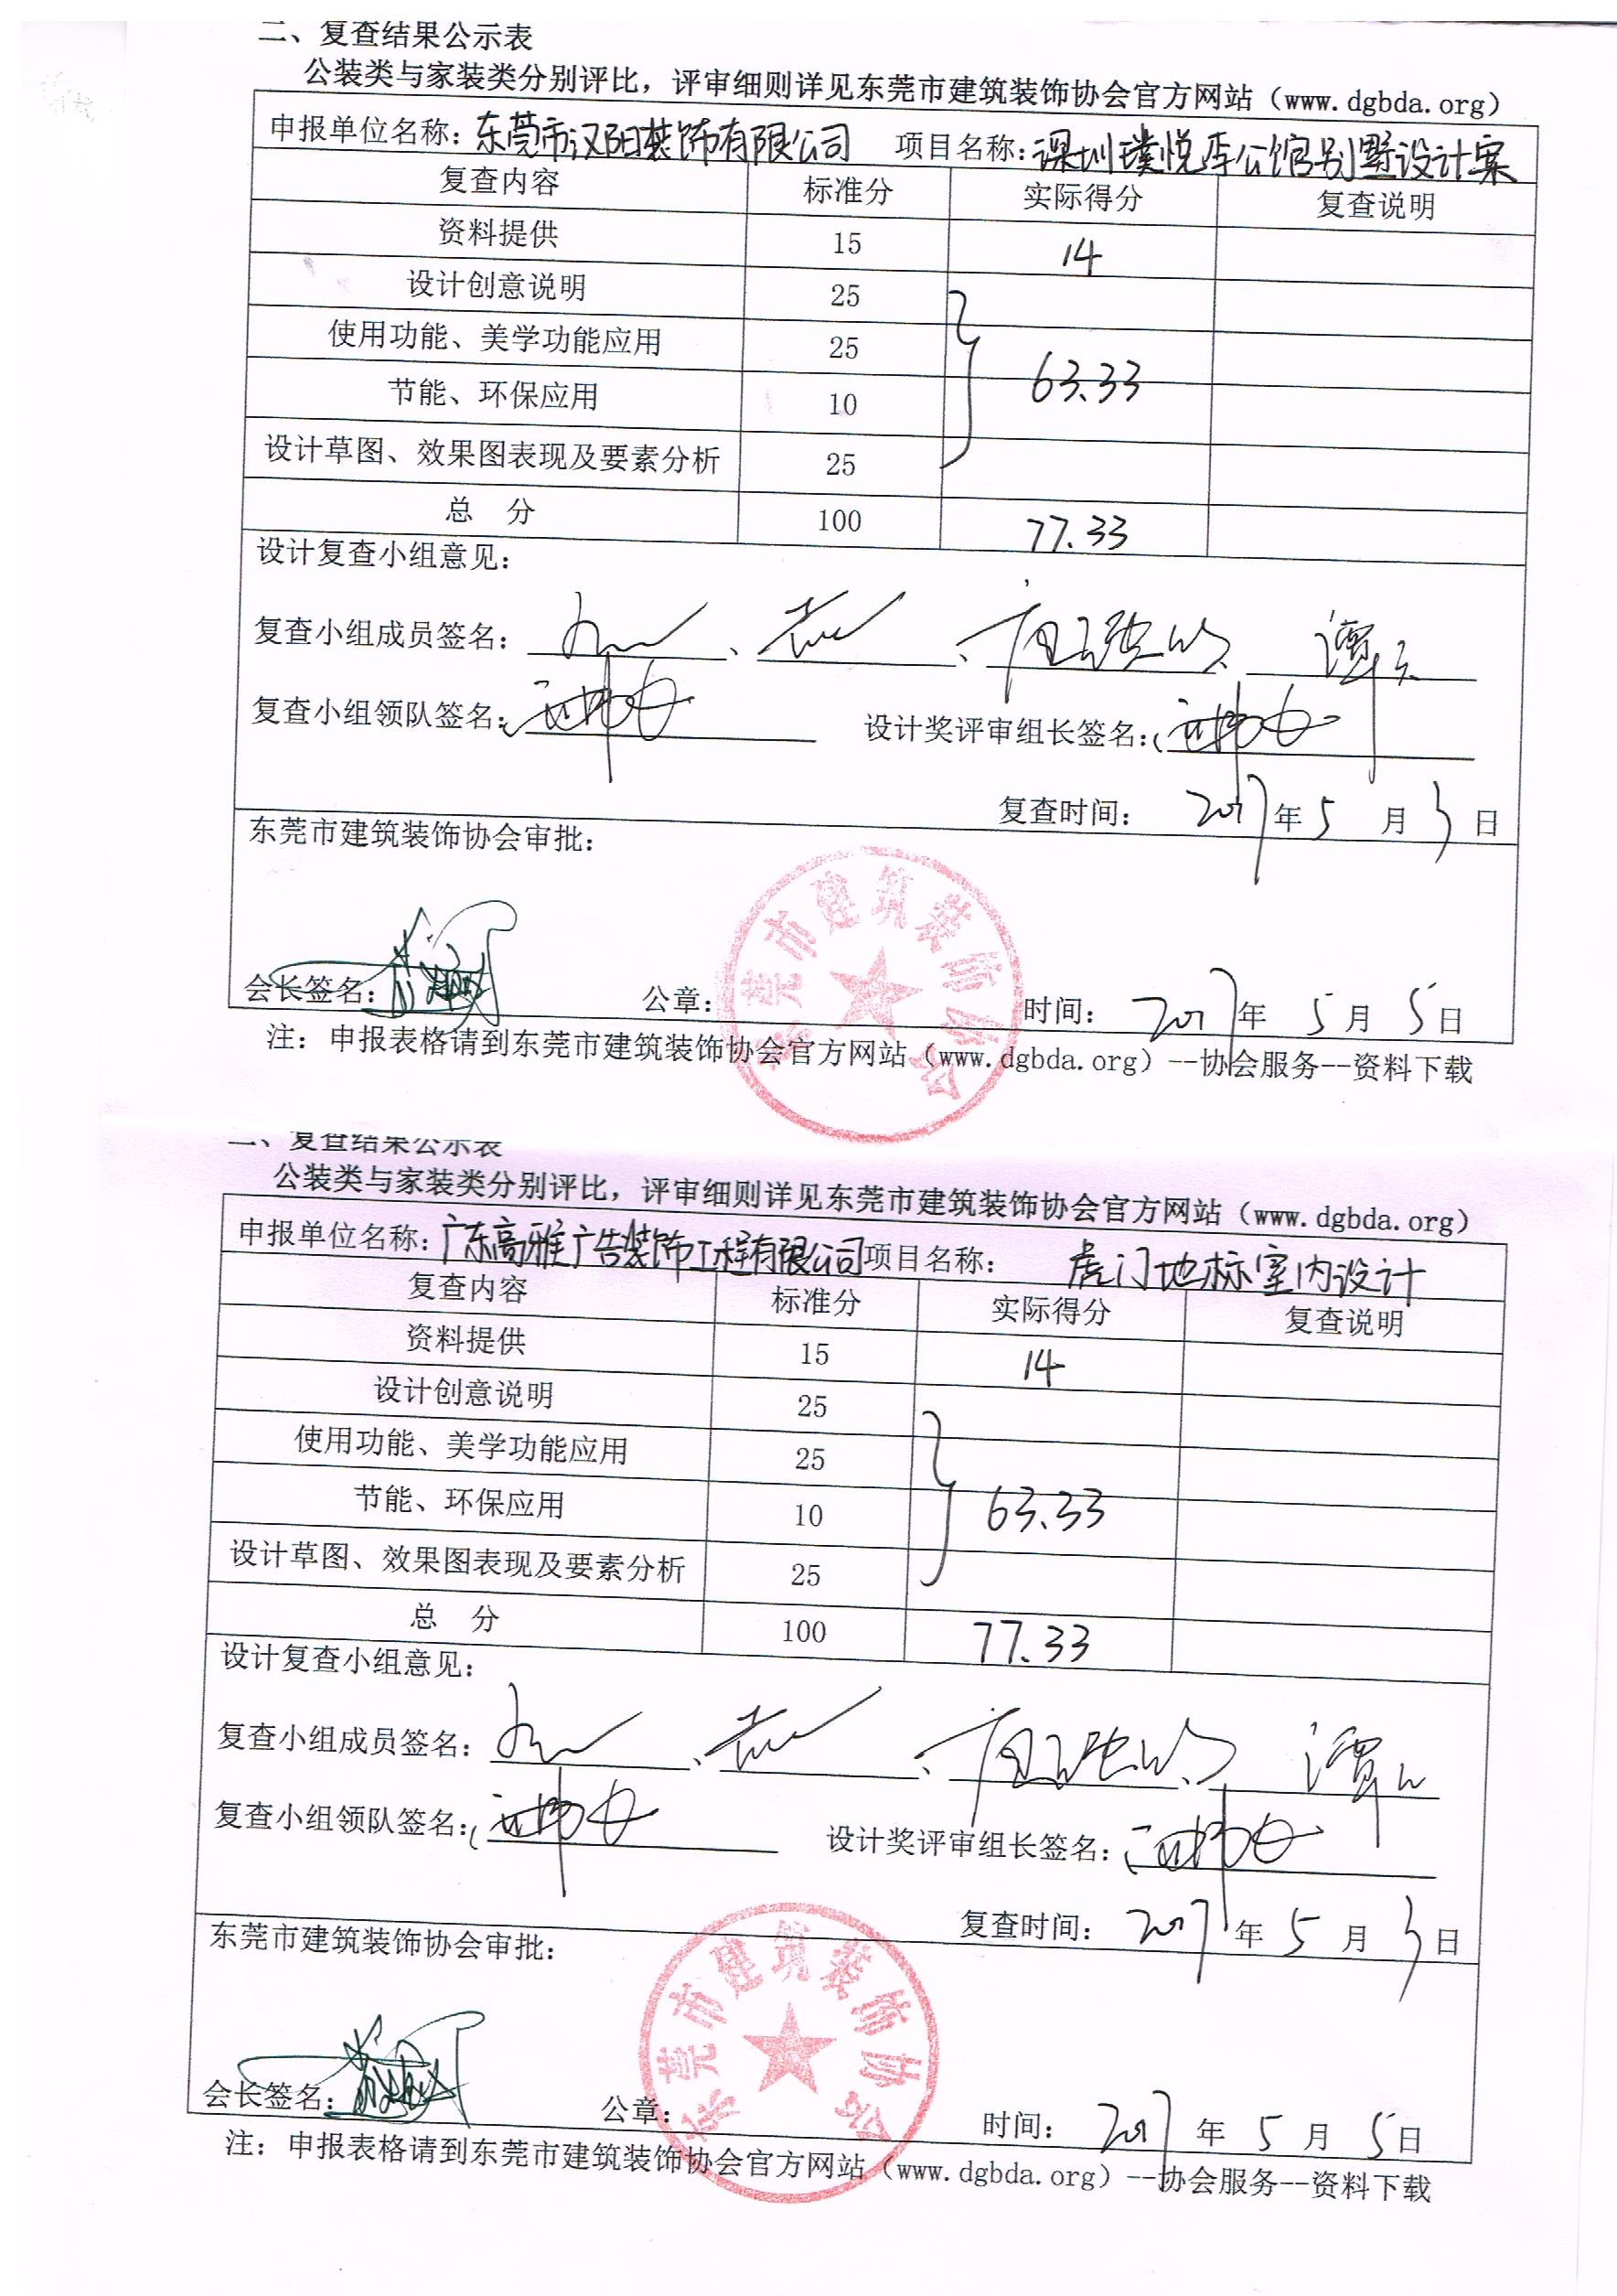 二、复查结果公示表
公装类与家装类分别评比，评审细则详见东莞市建筑装饰协会官方网站（www.dgbda.org）
申报单位名称：东莞市汉阳装饰有限公司 项目名称：深圳璞悦李公馆别墅设计案
复查内容 标准分 实际得分 复查说明
资料提供 15 14
设计创意说明 25
使用功能、美学功能应用 25
63.33
节能、环保应用 10
设计草图、效果图表现及要素分析 25
总 分 100 77.33
设计复查小组意见：
复查小组成员签名： 、 、 、
复查小组领队签名： 设计奖评审组长签名：
复查时间： 2017年5月3日
东莞市建筑装饰协会审批：
东莞市建筑装饰协会
会长签名： 公章： 时间： 2017年5月5日
注：申报表格请到东莞市建筑装饰协会官方网站（www.dgbda.org）--协会服务--资料下载
二、复查结果公示表
公装类与家装类分别评比，评审细则详见东莞市建筑装饰协会官方网站（www.dgbda.org）
申报单位名称：广东高雅广告装饰工程有限公司 项目名称： 虎门地标室内设计
复查内容 标准分 实际得分 复查说明
资料提供 15 14
设计创意说明 25
使用功能、美学功能应用 25
节能、环保应用 10 63.33
设计草图、效果图表现及要素分析 25
总 分 100 77.33
设计复查小组意见：
复查小组成员签名： 、 、 、
复查小组领队签名： 设计奖评审组长签名：
复查时间： 2017年5月3日
东莞市建筑装饰协会审批：
东莞市建筑装饰协会
会长签名： 公章： 时间： 2017年5月5日
注：申报表格请到东莞市建筑装饰协会官方网站（www.dgbda.org）--协会服务--资料下载